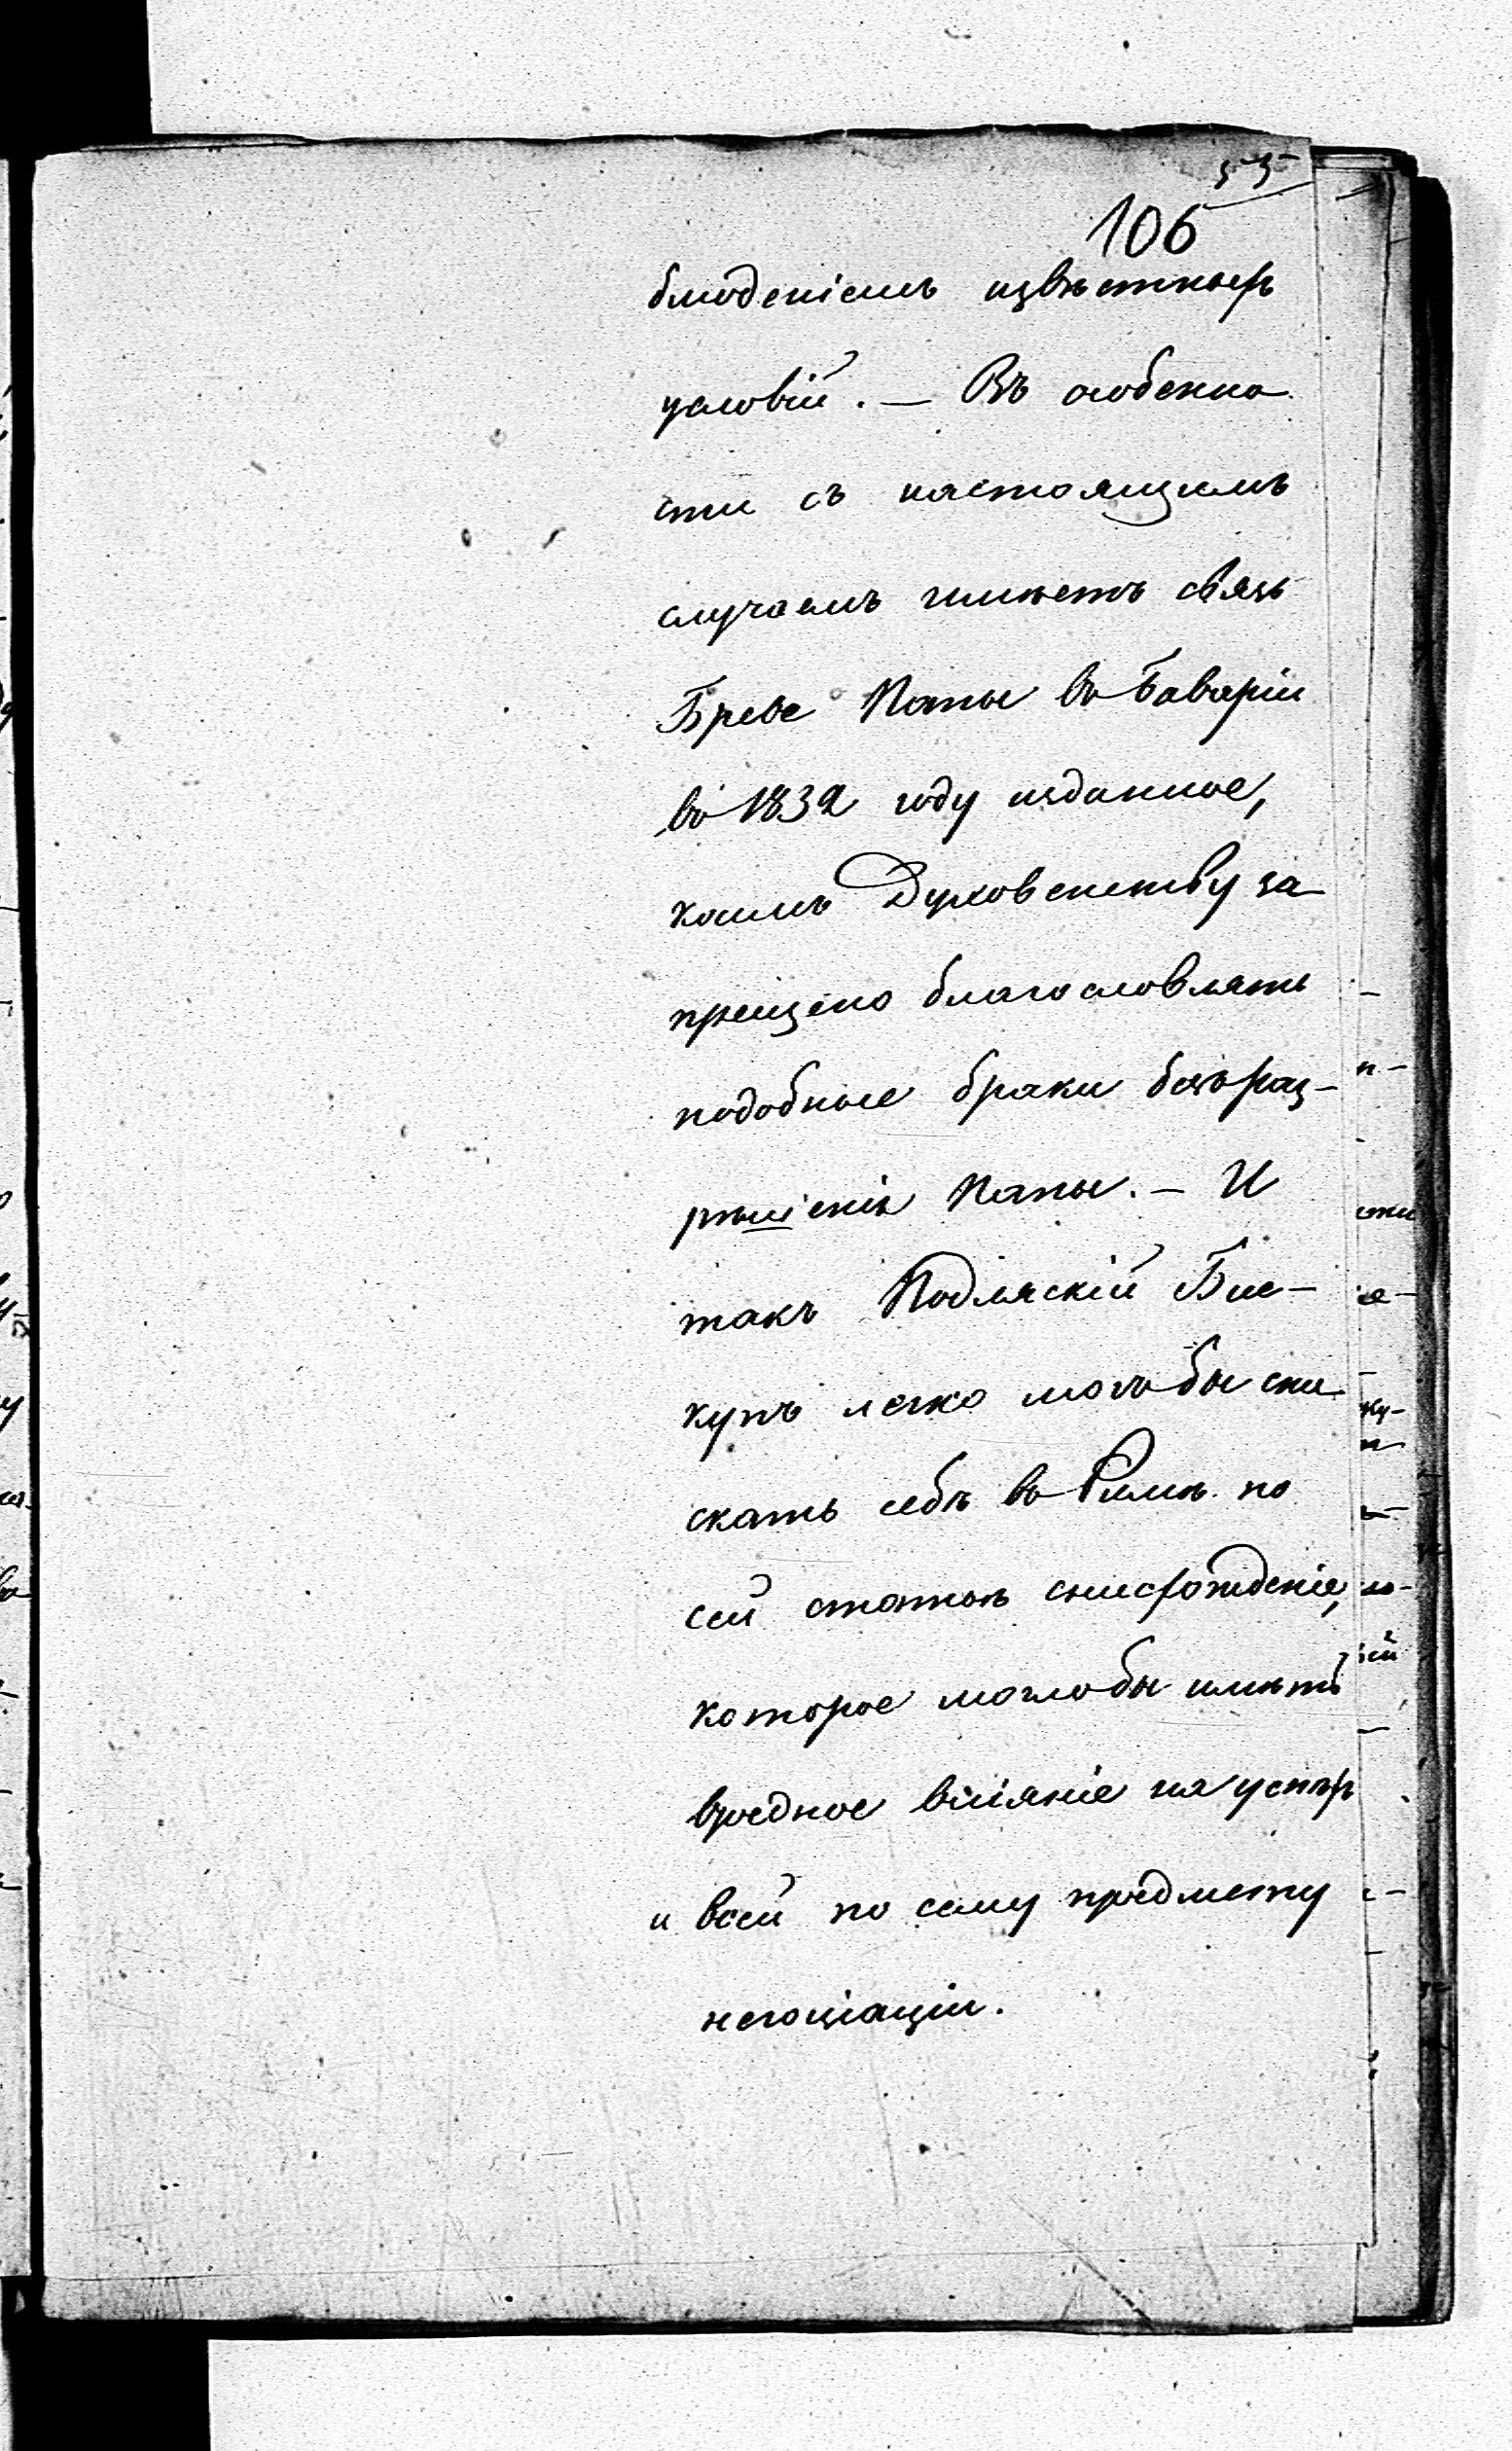 55
106
блюденіемъ извѣстныхъ
условій. — Въ особенно
сти съ настоящимъ
случаемъ имѣетъ связь
Бреве Папы въ Баваріи
въ 1832 году изданное,
коимъ Духовенству за
прещено благословлять
подобные браки безъ раз-
рѣшенія Папы. — И
такъ Подляскій Бис-
купъ легко могъ бы сни
скать себѣ въ Римѣ по
сей статьѣ снисхожденіе,
которое могло бы имѣть
вредное вліяніе на успѣхъ
и всей по сему предмету
негоціаціи.